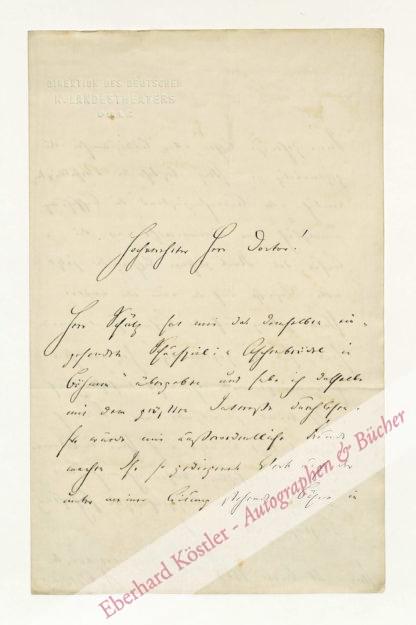 DIREKTION DES DEUTSCHEN
K. LANDESTHEATERS
Hochverehrter Herr Doctor!
Herr Schütz hat mir das von demselben ein-
gesendete Schauspiel: „Aschenbrödel in
Böhmen“ übergeben und habe ich dasselbe
mit dem größten Interesse durchlesen.
Es würde mir außerordentliche Freude
machen Ihr so gediegenes Werk auf der
unter meiner Leitung stehenden Bühne in
Eberhard Köstler - Autographen & Bücher